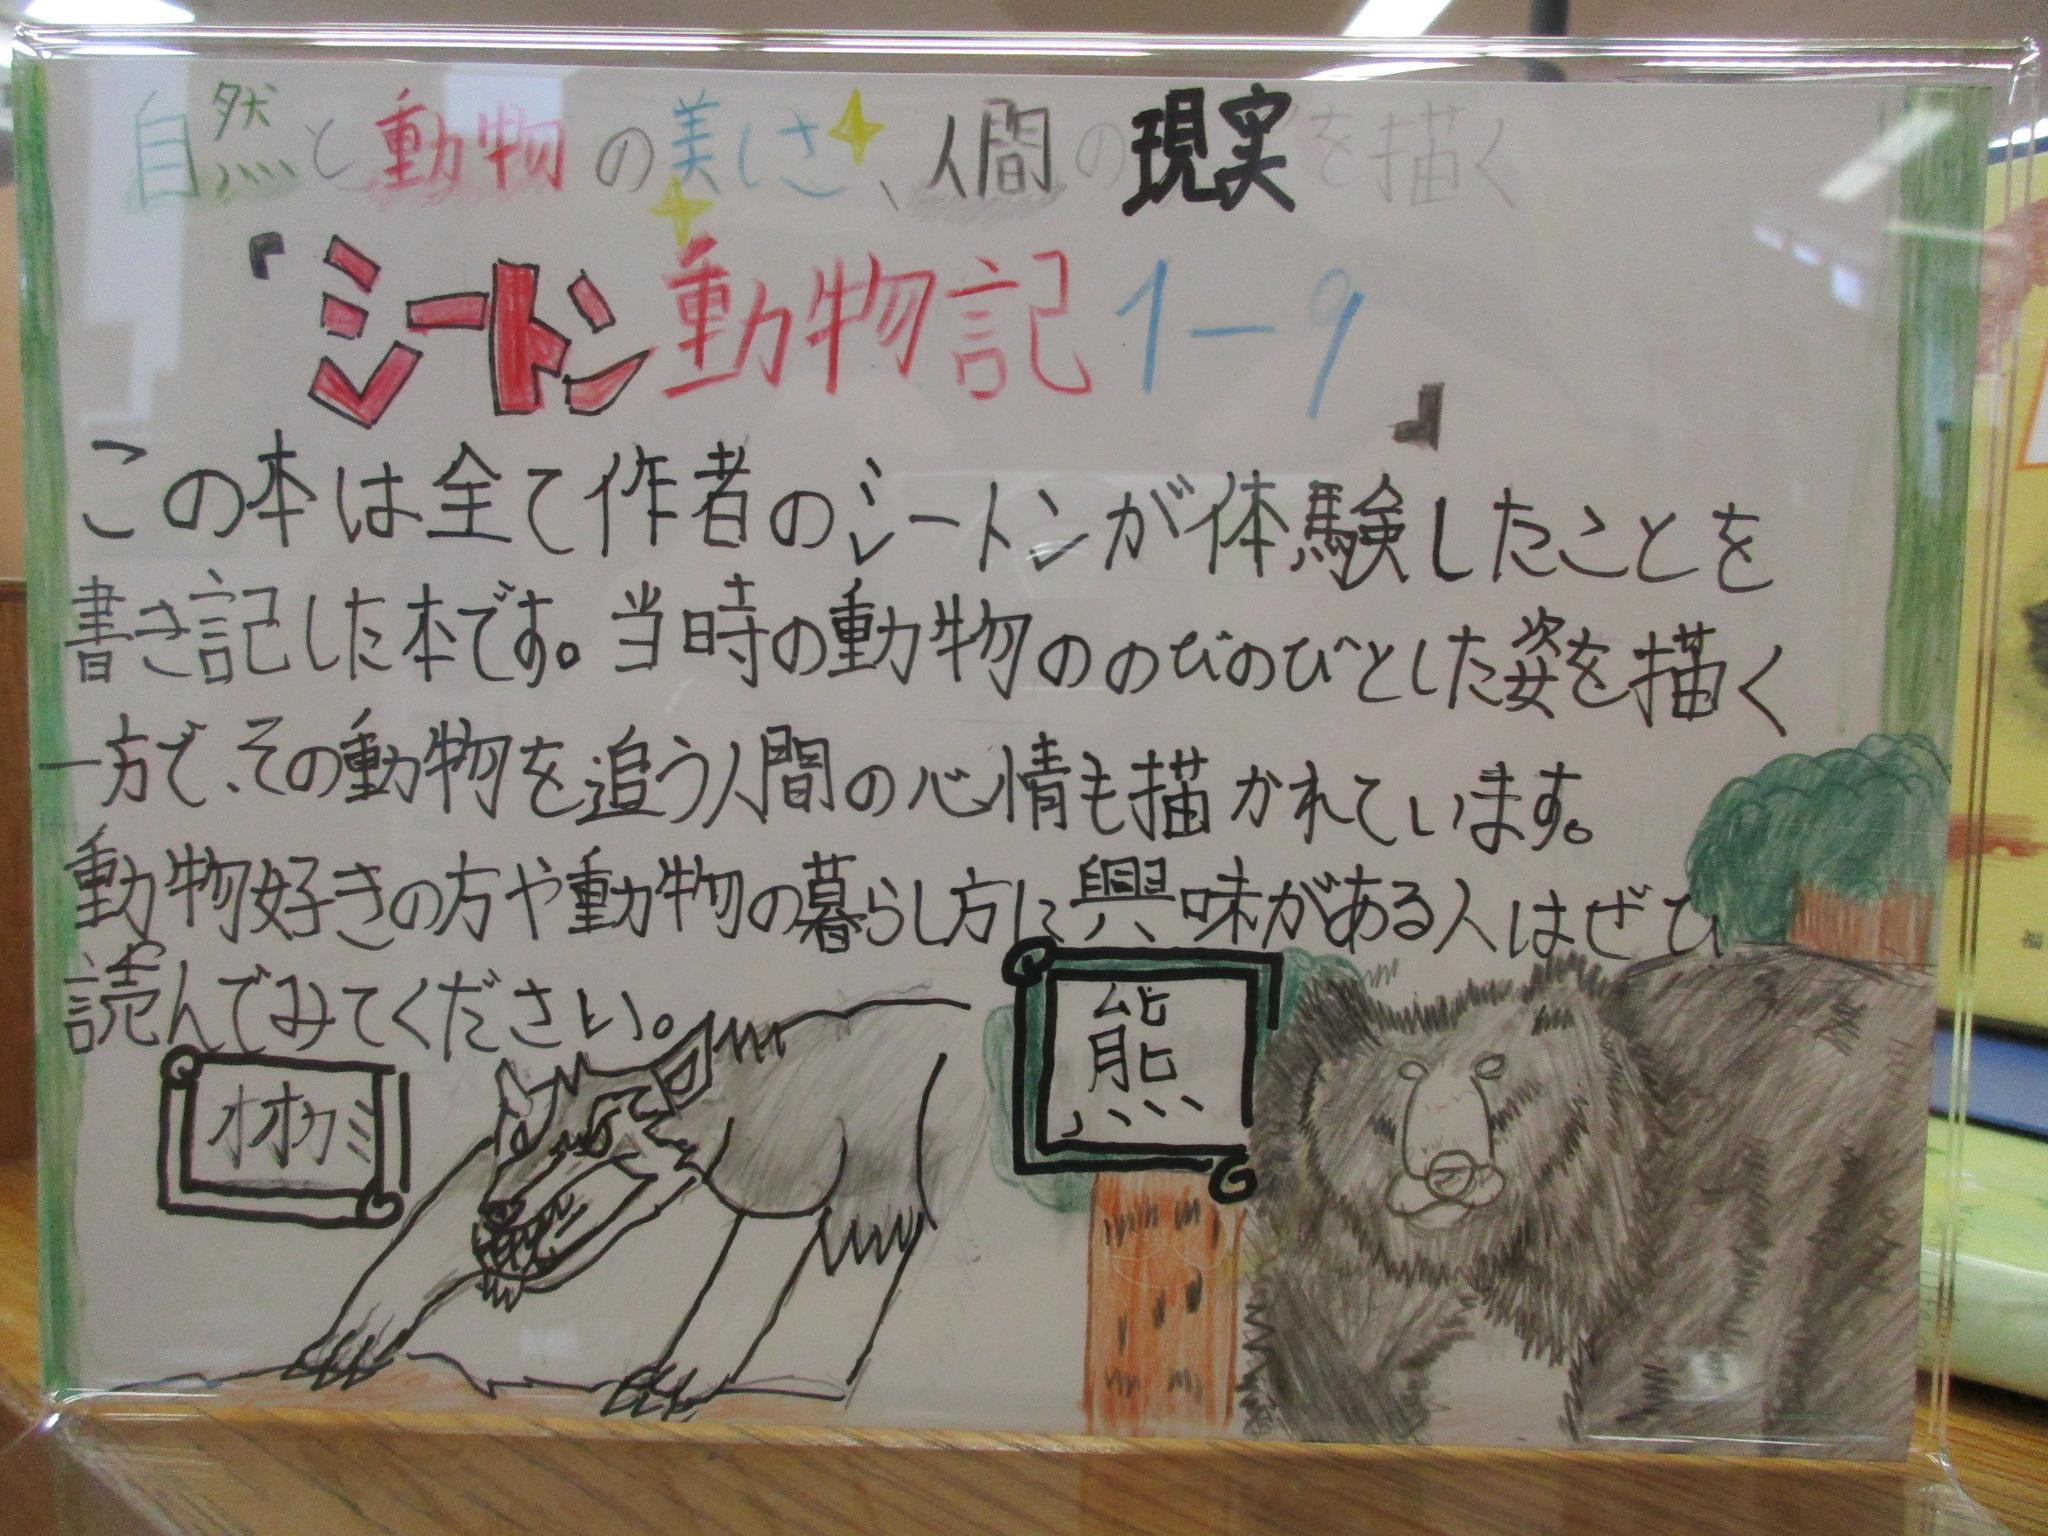 自然と動物の美しさ、人間の現実を描く
『シートン動物記1－9』
この本は全て作者のシートンが体験したことを
書き記した本です。当時の動物ののびのびとした姿を描く
一方で、その動物を追う人間の心情も描かれています。
動物好きの方や動物の暮らし方に興味がある人はぜひ
読んでみてください。
オオカミ
熊